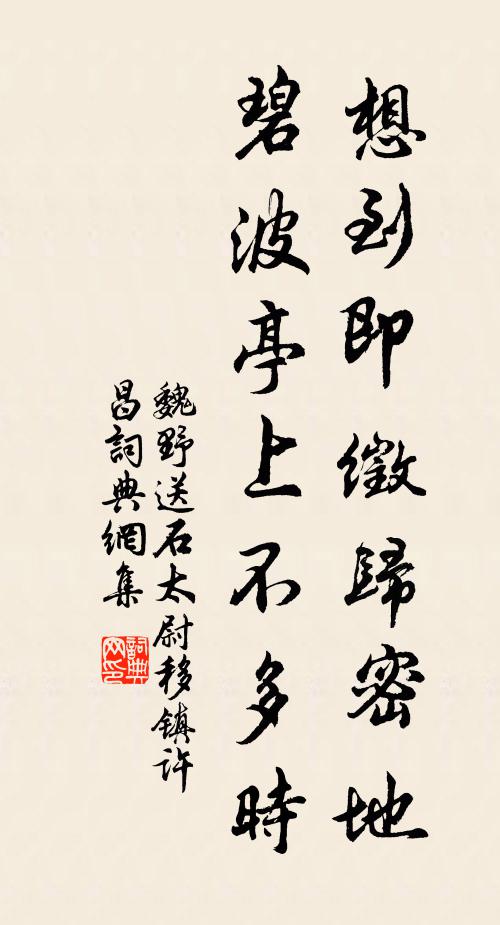 想到即徵歸密地
碧波亭上不多時
魏野送石太尉移鎮許
昌詞典網集
詞典
网印